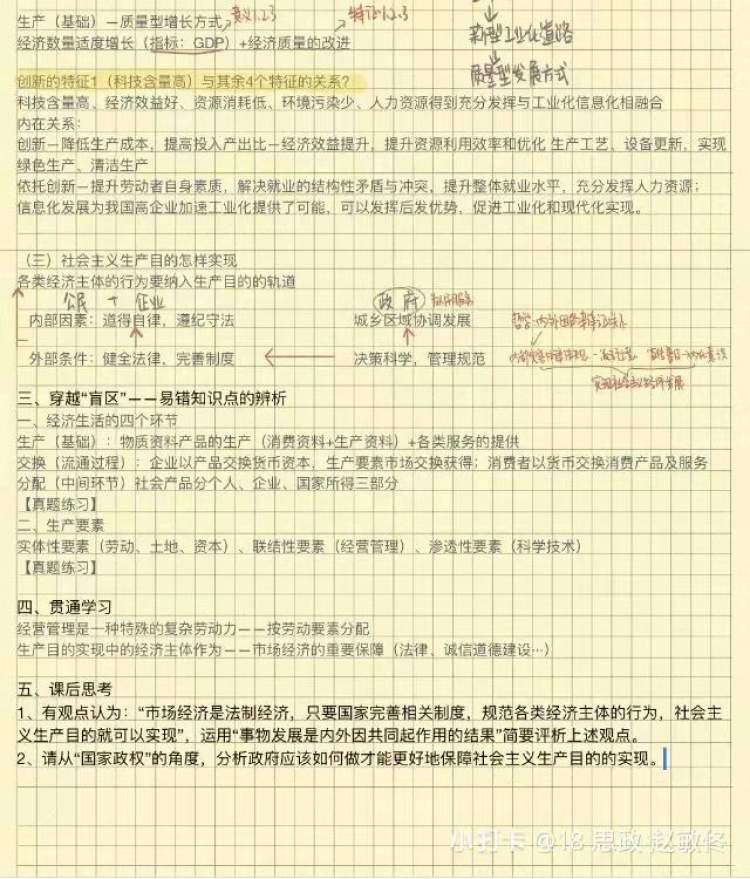 生产（基础）—质量型增长方式 意义1.2.3 特征1.2.3
经济数量适度增长（指标：GDP）+经济质量的改进
新型工业化道路
质量型发展方式
创新的特征1（科技含量高）与其余4个特征的关系？
科技含量高、经济效益好、资源消耗低、环境污染少、人力资源得到充分发挥与工业化信息化相融合
内在关系：
创新—降低生产成本，提高投入产出比—经济效益提升，提升资源利用效率和优化 生产工艺、设备更新，实现
绿色生产、清洁生产
依托创新—提升劳动者自身素质，解决就业的结构性矛盾与冲突，提升整体就业水平，充分发挥人力资源；
信息化发展为我国高企业加速工业化提供了可能，可以发挥后发优势，促进工业化和现代化实现。
（三）社会主义生产目的怎样实现
各类经济主体的行为要纳入生产目的的轨道
公民 + 企业 政府
内部因素：道得自律，遵纪守法 城乡区域协调发展
外部条件：健全法律，完善制度 决策科学，管理规范
三、穿越“盲区”——易错知识点的辨析
一、经济生活的四个环节
生产（基础）：物质资料产品的生产（消费资料+生产资料）+各类服务的提供
交换（流通过程）：企业以产品交换货币资本，生产要素市场交换获得；消费者以货币交换消费产品及服务
分配（中间环节）社会产品分个人、企业、国家所得三部分
【真题练习】
二、生产要素
实体性要素（劳动、土地、资本）、联结性要素（经营管理）、渗透性要素（科学技术）
【真题练习】
四、贯通学习
经营管理是一种特殊的复杂劳动力——按劳动要素分配
生产目的实现中的经济主体作为——市场经济的重要保障（法律、诚信道德建设…）
五、课后思考
1、有观点认为：“市场经济是法制经济，只要国家完善相关制度，规范各类经济主体的行为，社会主
义生产目的就可以实现”，运用“事物发展是内外因共同起作用的结果”简要评析上述观点。
2、请从“国家政权”的角度，分析政府应该如何做才能更好地保障社会主义生产目的的实现。
小打卡 @48 思政 赵敏佟